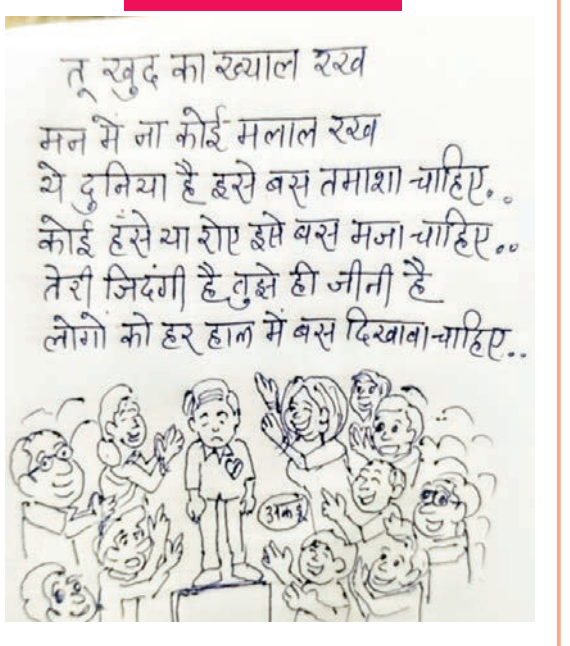 तू खुद का ख्याल रख
मन में ना कोई मलाल रख
ये दुनिया है इसे बस तमाशा चाहिए..
कोई हँसे या रोए इसे बस मजा चाहिए..
तेरी जिदंगी है तुझे ही जीनी है
लोगों को हर हाल में बस दिखावा चाहिए..